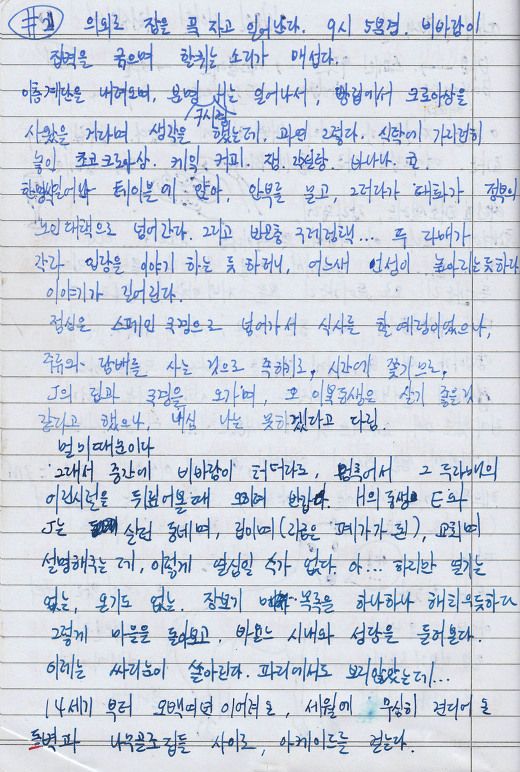 #1 의외로 잠을 푹 자고 일어난다. 9시 5분경. 비바람이
집벽을 긁으며 할퀴는 소리가 매섭다.
이층계단을 내려오며, 분명 너는 일어나서, 빵집에서 크로아상을
구시렁
사왔을 거라며 생각을 했는데, 과연 그렇다. 식탁에 가지런히
놓인 초코크로아상. 케익. 커피. 잼. 각설탕. 바나나. 콘.
테이블에 앉아, 안부를 묻고, 그러다가 대화가 정부의
노인대책으로 넘어간다. 그리고 반론층 국제정책... 두 라배가
각각 입장을 이야기 하는 듯 하더니, 어느새 언성이 높아지는듯하다
이야기가 길어진다.
점심은 스페인 국경으로 넘어가서 식사를 할 예정이었으나,
주류와 담배를 사는 것으로 족하기로, 시간에 쫓기므로,
J의 집과 국경을 오가며, 이복동생은 살기 좋을것
같다고 했으나, 내심 나는 못하겠다고 다짐.
벌이때문이다
그래서 중간에 비바람이 터더라도, 멈추어서 그 두라배의
어린시절을 뒤집어볼때 오히려 반갑다. H의 동생 E와
J는 살던 동네며, 집이며 (지금은 폐가가 된), 교회며
설명해주는데, 이렇게 열심일 수가 없다. 아... 하지만 열기는
없는, 온기도 없는. 장보기 목록을 하나하나 해치우듯하다
그렇게 마을을 돌아보고, 바욘느 시내와 성당을 들어본다.
이제는 싸리눈이 쏟아진다. 파리에서도 보지않았는데...
14세기 부터 오백여년 이어져온, 세월에 무상히 견디어온
돌벽과 나무골조집들 사이로, 아케이드를 걷는다.